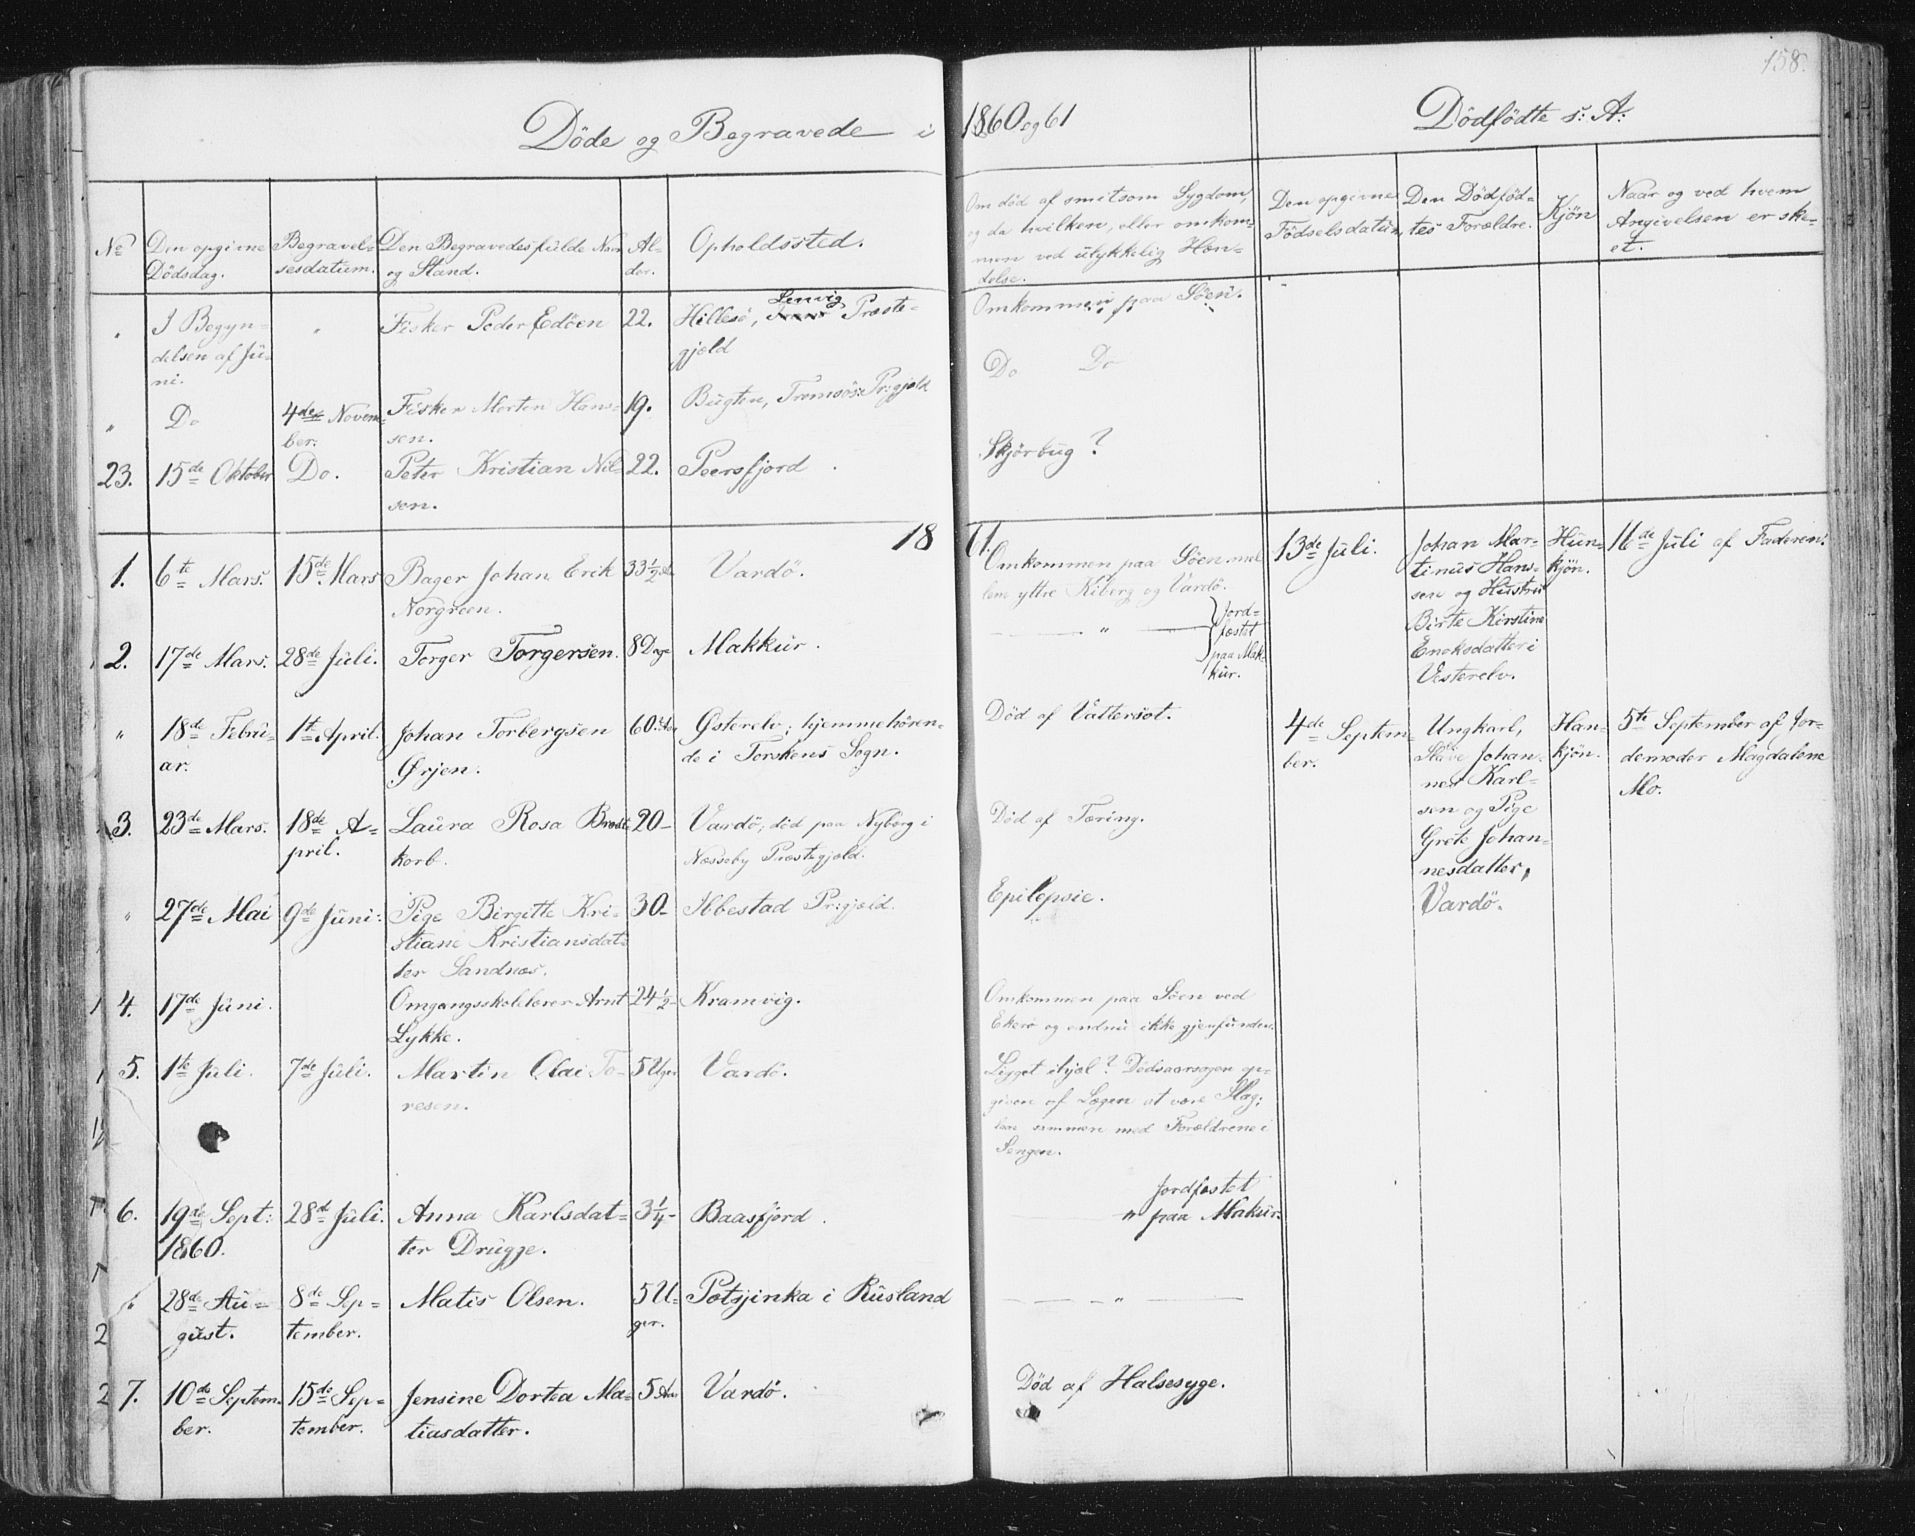 158.
Döde og Begravede i 1860 og 61
Dödfödte s: A:
No
Den opgivne
Dödsdag.
Begravel-
sesdatum.
Den Begravedes fulde Navn
og Stand.
Al-
der.
Opholdssted.
Om död af smitsom Sygdom,
og da hvilken, eller omkom-
men ved ulykkelig Hæn-
delse.
Den opgivne
Födselsdatum
Den Dödföd-
tes Forældre.
Kjön
Naar og ved hvem
Angivelsen er ske-
et.
"
I Begyn-
delsen af Ju-
ni.
"
Fisker Peder Edöen
22.
Hillesö, Lenvig Præste-
gjeld
Omkommen paa Söen.
"
Do
4de Novem-
ber.
Fisker Morten Hans-
sen.
19.
Bugten, Tromsös Pr:gjeld
Do Do
23.
15de Oktober
Do.
Peter Kristian Nil-
sen.
22.
Peersfjord
Skjörbug?
1861.
1.
6te Mars.
15de Mars
Bager Johan Erik
Norgreen.
33 1/2 Aar
Vardö.
Omkommen paa Söen mel-
lem yttre Kiberg og Vardö.
13de Juli.
Johan Mar-
tinus Hans-
sen og Hustru
Birte Kirstine
Enoksdatter i
Vesterelv.
Hun-
kjön.
16de Juli af Faderen.
2.
17de Mars.
28de Juli.
Torger Torgersen.
8 Dage
Makkur.
"
Jord-
fæstet
paa Mak-
kur.
"
18de Febru-
ar.
1te April.
Johan Torbergsen
Örjen.
60 Aar
Österelv; hjemmehören-
de i Torskens Sogn.
Död af Vattersot.
4de Septem-
ber.
Ungkarl,
Slave Johan-
nes Karl-
sen og Pige
Grete Johan-
nesdatter,
Vardö.
Han-
kjön.
5te September af Jor-
demoder Magdalene
Mo.
3.
23de Mars.
18de A-
pril.
Laura Rosa Brodt-
korb.
20-
Vardö, död paa Nyborg i
Næsseby Præstegjeld.
Död af Tæring.
"
27de Mai
9de Juni.
Pige Birgitte Kri-
stiane Kristiansdat-
ter Sandnes.
30-
Ibbestad Pr:gjeld.
Epilepsie.
4.
17de Juni.
Omgangsskolelærer Arnt
Lykke.
24 1/2-
Kramvig.
Omkommen paa Söen ved
Ekerö og endnu ikke gjenfunden.
5.
1te Juli.
7de Juli.
Martin Olai To-
resen.
5 Uger
Vardö.
Ligget ihjel? Dödsaarsagen op-
given af Lægen at være Slag;
laae sammen med Forældrene i
Sengen.
6.
19de Sept:
1860.
28de Juli.
Anna Karlsdat-
ter Drugge.
3 1/4-
Baasfjord.
"
Jordfæstet
paa Makur.
28de Au-
gust.
8de Sep-
tember.
Matis Olsen.
5 U-
ger.
Pætsjinka i Rusland
"
7.
10de Septem-
ber.
15de Sep-
tember.
Jensine Dortea Ma-
tiasdatter.
5 Aar
Vardö.
Död af Halsesyge.